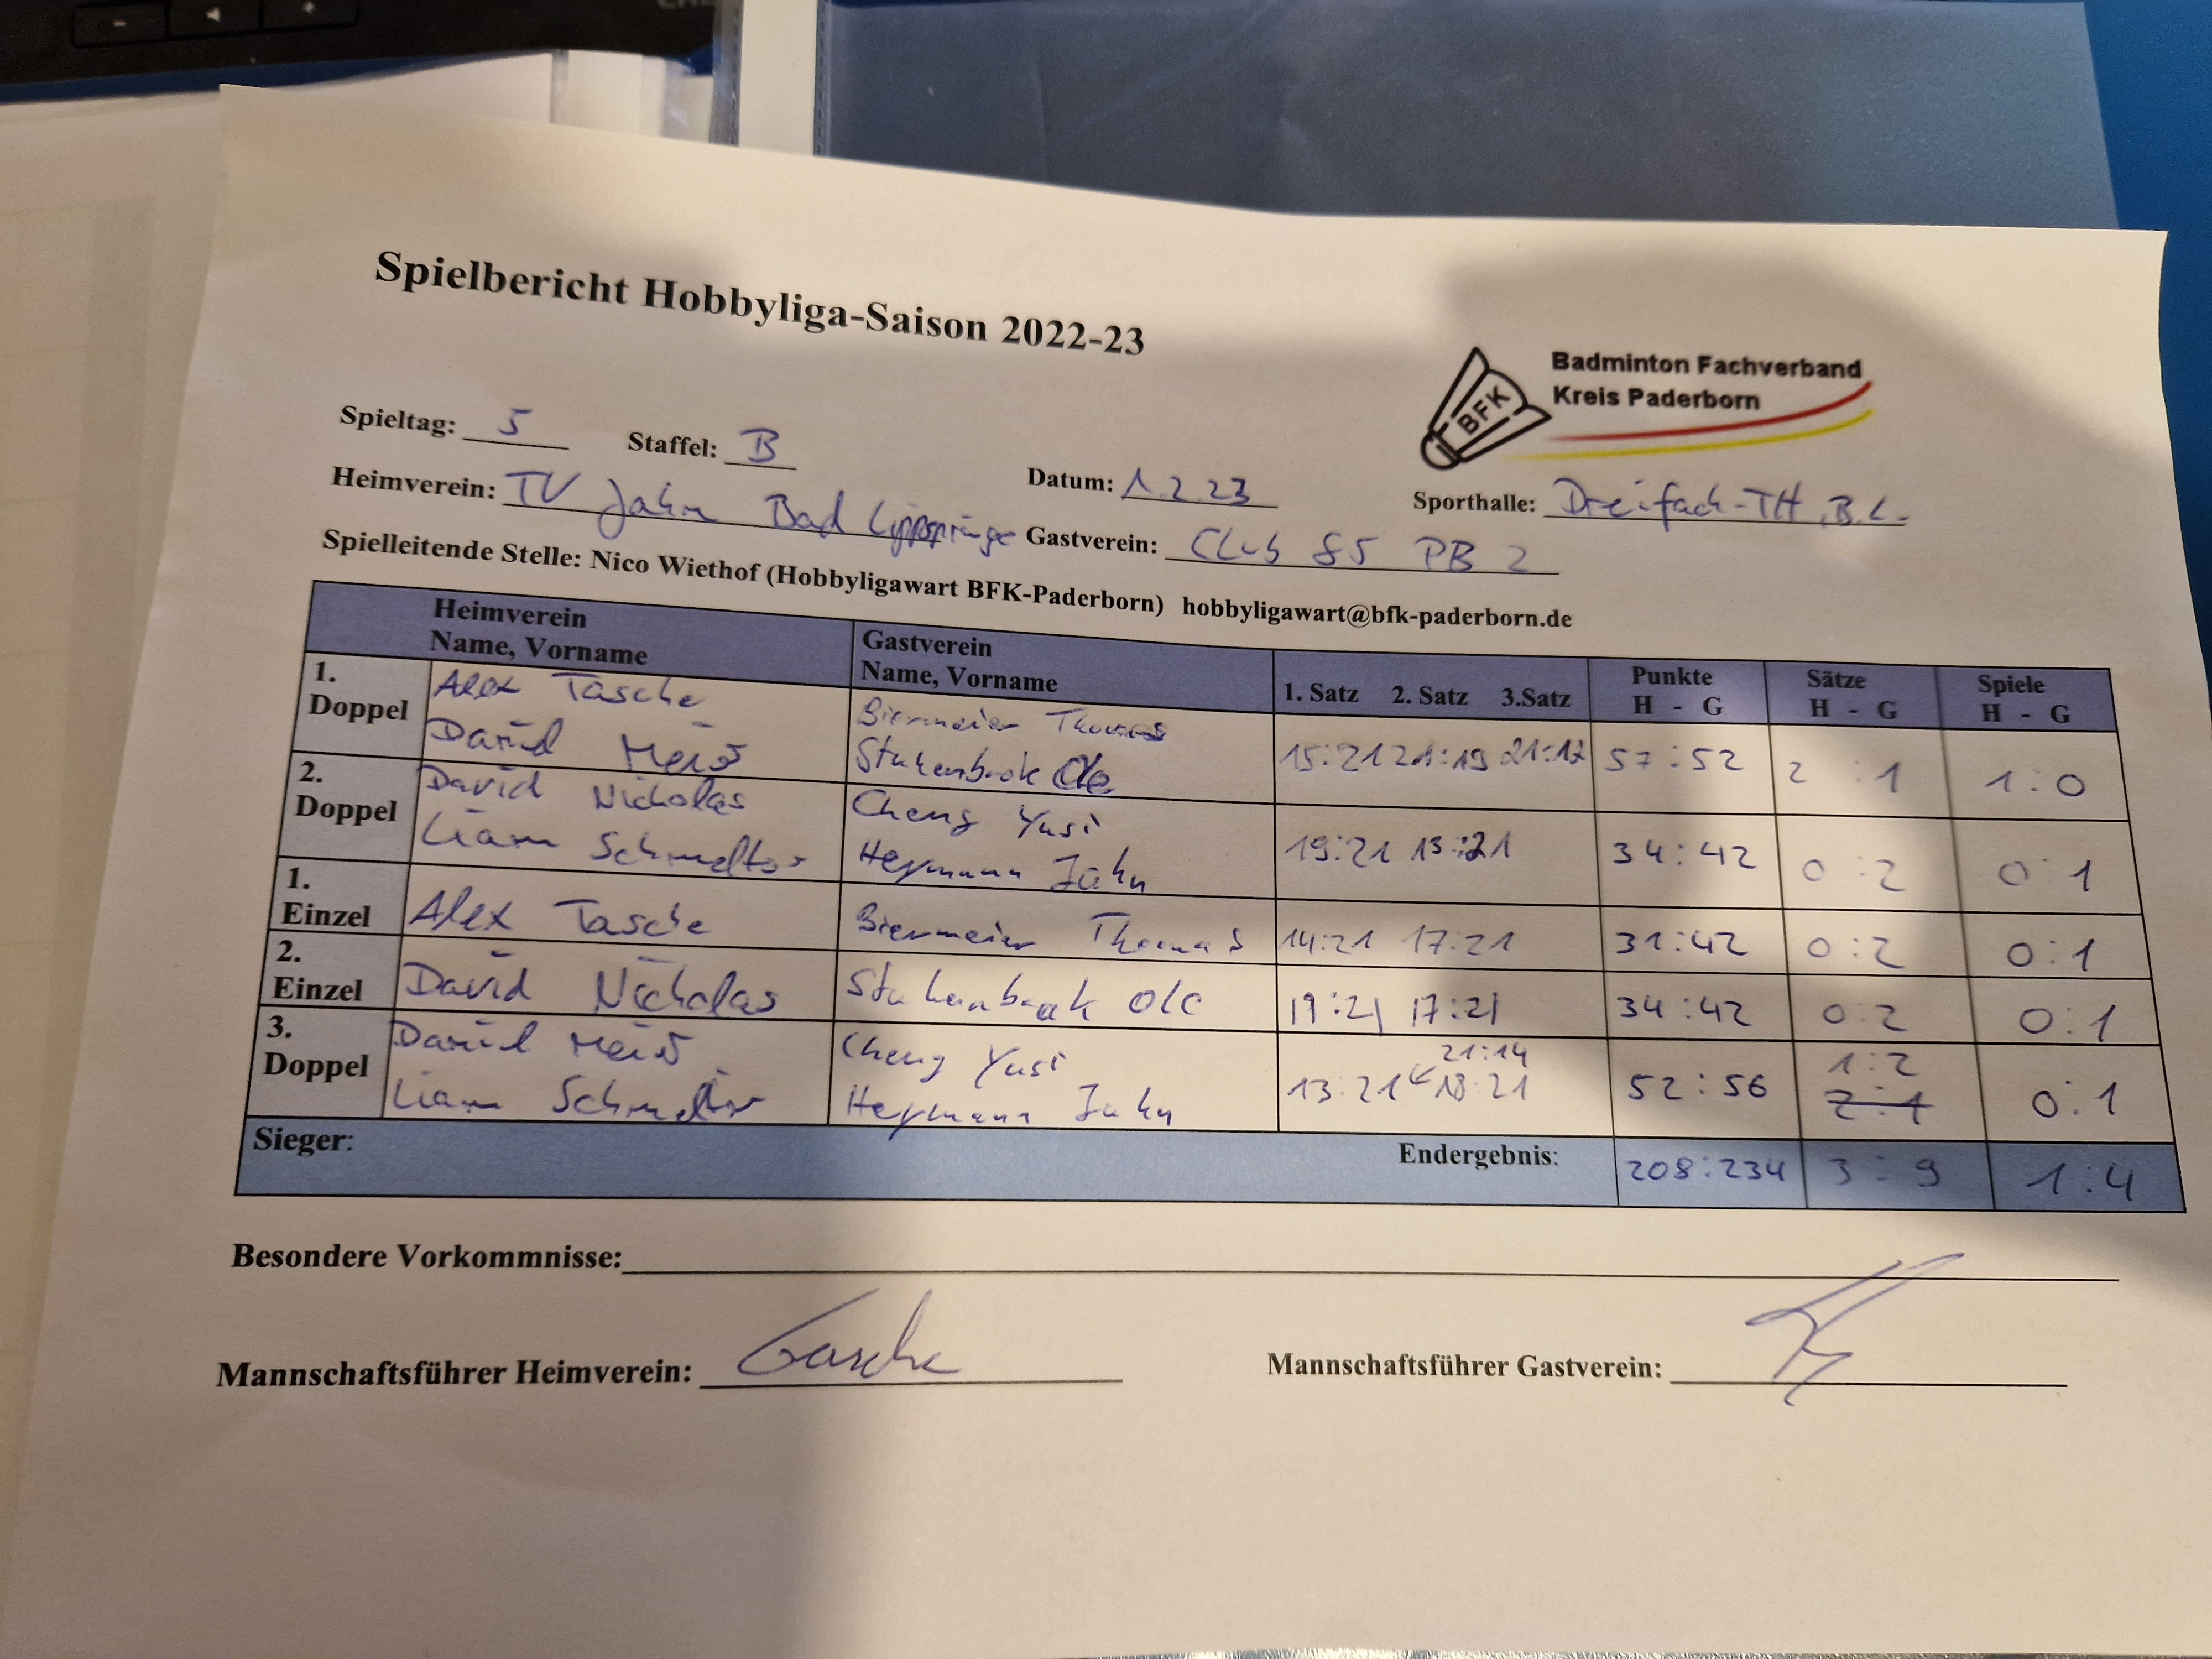 Spielbericht Hobbyliga-Saison 2022-23
BFK
Badminton Fachverband
Kreis Paderborn
Spieltag: 5 Staffel: B Datum: 1.2.23 Sporthalle: Dreifach-TH, B.L.
Heimverein: TV Jahn Bad Lippspringe Gastverein: Club 85 PB 2
Spielleitende Stelle: Nico Wiethof (Hobbyligawart BFK-Paderborn) hobbyligawart@bfk-paderborn.de
Heimverein Gastverein
Name, Vorname Name, Vorname 1. Satz 2. Satz 3.Satz Punkte H - G Sätze H - G Spiele H - G
1. Doppel Alex Tasche Biermeier Thomas
David Stukenbrok Ole 15:21 21:19 21:12 57:52 2:1 1:0
2. Doppel David Nicholas Cheng Yusi
Liam Heymann Jahn 19:21 15:21 34:42 0:2 0:1
1. Einzel Alex Tasche Biermeier Thomas 14:21 17:21 31:42 0:2 0:1
2. Einzel David Nicholas Stukenbrok Ole 19:21 17:21 34:42 0:2 0:1
3. Doppel Cheng Yusi 21:14 1:2
Liam Heymann Jahn 13:21 18:21 52:56 2:1 0:1
Sieger: Endergebnis: 208:234 3:9 1:4
Besondere Vorkommnisse:
Mannschaftsführer Heimverein: Tasche Mannschaftsführer Gastverein: